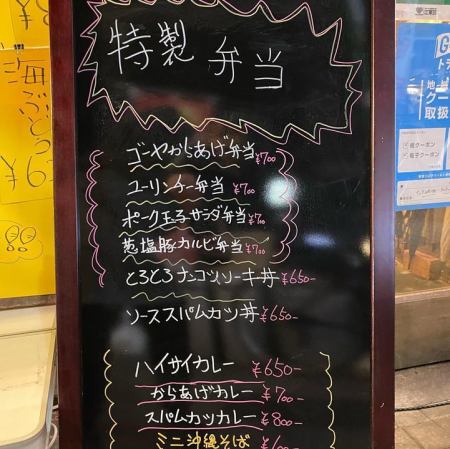 特製弁当
ゴーヤからあげ弁当 ¥700
ユーリンチー弁当 ¥700
ポーク玉子サラダ弁当 ¥700
葱塩豚カルビ弁当 ¥700
とろとろナンコツソーキ丼 ¥650-
ソーススパムカツ丼 ¥650-
ハイサイカレー ¥650-
からあげカレー ¥700-
スパムカツカレー ¥800-
ミニ沖縄そば
海ぶどう
地域
クー
取扱
紙クーポン
電子クーポン